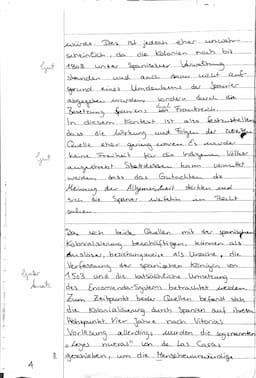 würde. Dies ist jedoch eher unwahr-
scheinlich, da die Kolonien noch bis
1808 unter spanischer Verwaltung
standen und auch dann nicht auf-
grund eines Umdenkens der Spanier
abgegeben wurden, sondern durch die
Besetzung Spaniens Frankreich.
In diesem Kontext ist also festzustellen
dass die Wirkung und Folgen der
Quelle eher gering waren. Es wurde
keine Freiheit für die indigenen Völker
kann vermutet
werden dass das Gutachten die
Meinung der Allgemeinheit stärkten und
sich die Spanier im Recht
Gut
Gut
Da sich beide Quellen mit der spanischen
Kolonialisierung beschäftigen, können als
Auslöser, beziehungsweise als Ursache, die
Verfassung der spanischen Königin von
1503 und die Umsetzung
des Encomienda-Systems betrachtet werden.
Zum Zeitpunkt beider Quellen befand sich
die Kolonialisierung durch Spanien auf ihrem
Höhepunkt. Vier Jahre nach Vitorias
Vorlesung allerdings wurden die sogenannten
"Leyes nuevas" von de Las Casas
geschrieben, um die
R
4